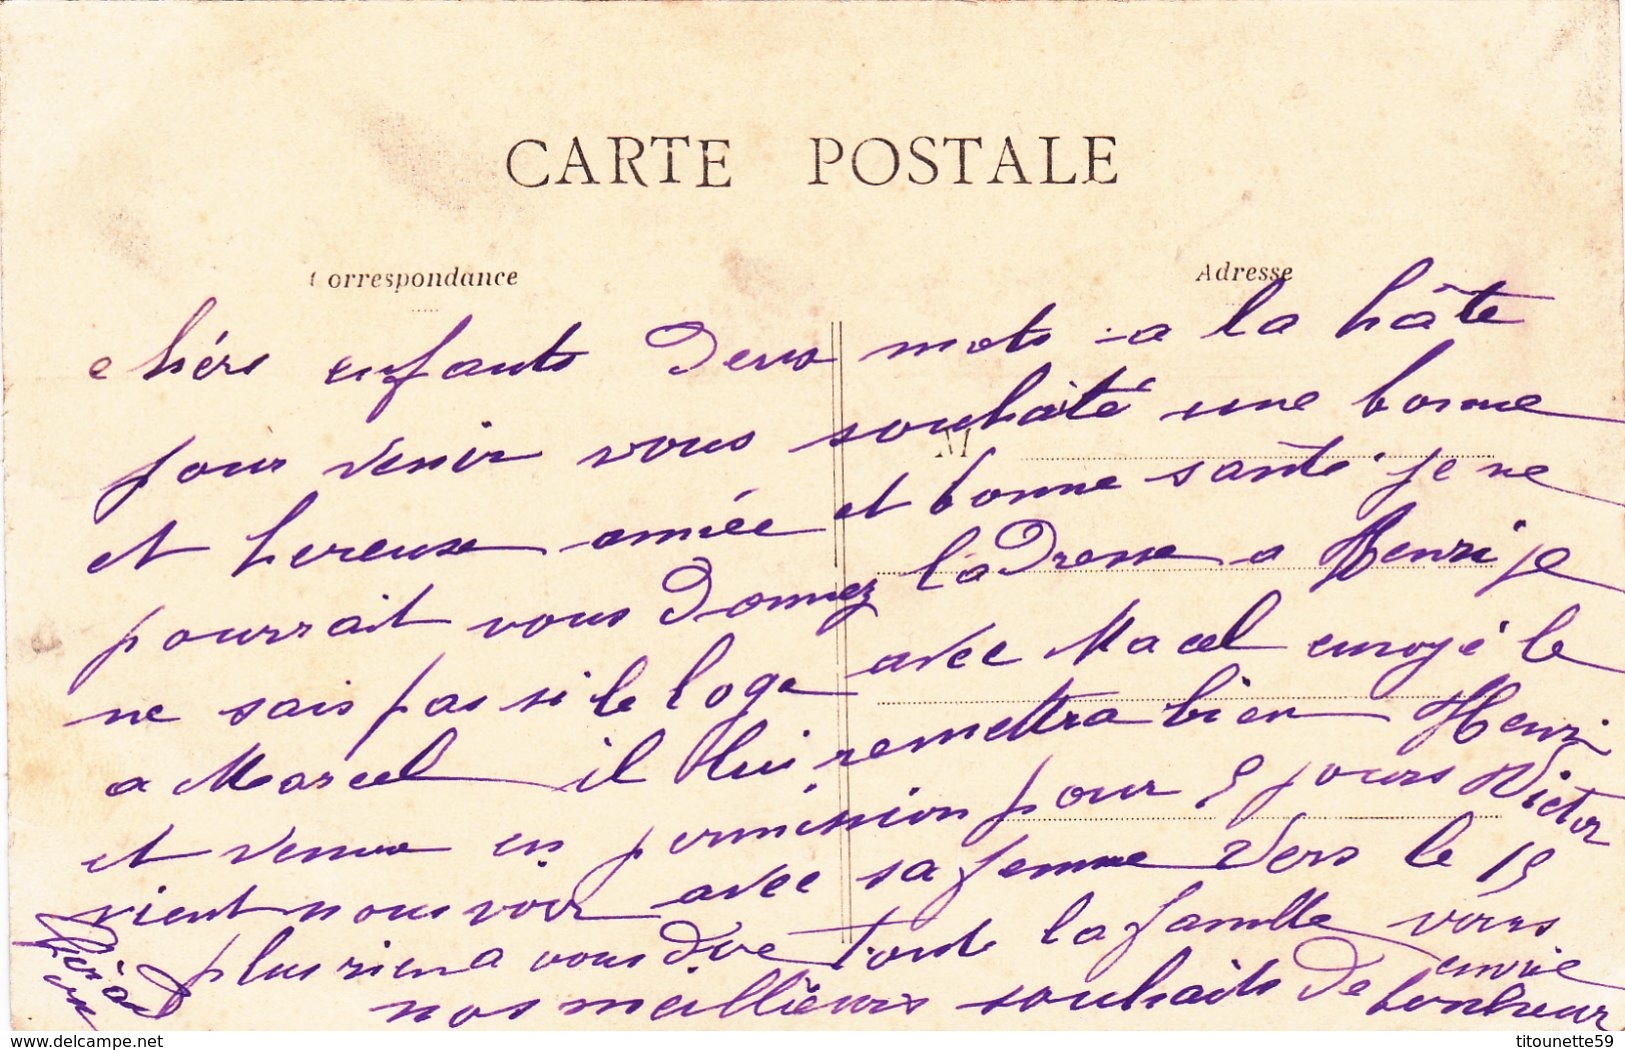 CARTE POSTALE
Correspondance
Adresse
M
chérs enfants Deux mots a la hâte
pour venir vous souhaité une bonne
et hereuse année et bonne santé je ne
pourrait vous Donnez l'aDresse a Henri je
ne sais pas si le loge avec Macel envoyé le
a Marcel il lui remettra bien Henri
et venu en permission pour 5 jours Victor
vient nous voir avec sa femme vers le 15
plus rien a vous Dire toute la famille vous
envoie
nos meillieurs souhaits De bonheur
delcampe.net
titounette59